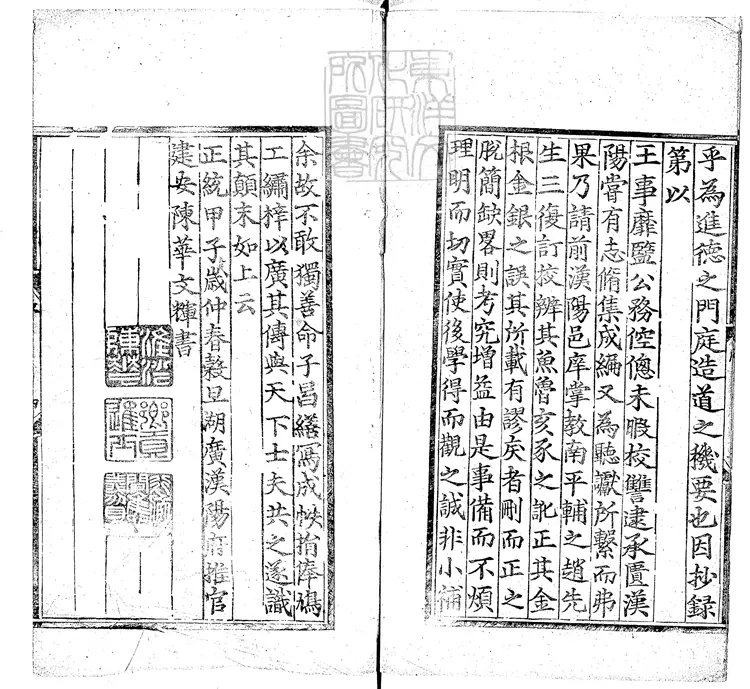 乎為進德之門庭造道之機要也因抄錄
第以
王事靡盬公務倥傯未暇校讐逮承匱漢
陽嘗有志脩集成編又為聽讞所繫而弗
果乃請前漢陽邑庠掌教南平輔之趙先
生三復訂校辨其魚魯亥豕之訛正其金
根金銀之誤其所載有謬戾者刪而正之
脫簡缺畧則考究增益由是事備而不煩
理明而切實使後學得而觀之誠非小補
余故不敢獨善命子昌繕寫成帙捐俸鳩
工繡梓以廣其傳與天下士夫共之遂識
其顛末如上云
正統甲子歲仲春穀旦湖廣漢陽府推官
建安陳華文輝書
東洋文化研究所圖書